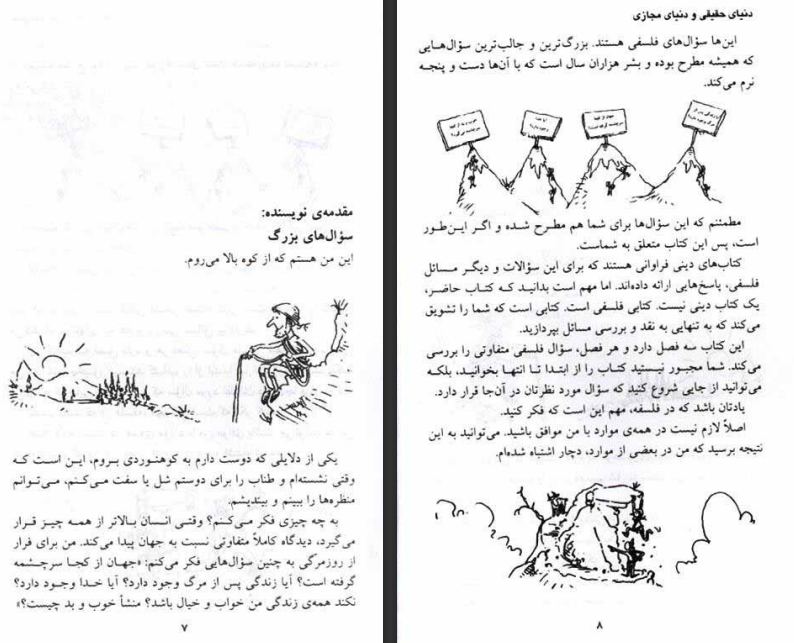 مقدمه‌ی نویسنده:
سؤال‌های بزرگ
این من هستم که از کوه بالا می‌روم.
یکی از دلایلی که دوست دارم به کوهنوردی بروم، این است که
وقتی نشسته‌ام و طناب را برای دوستم شل یا سفت می‌کنم، می‌توانم
منظره‌ها را ببینم و بیندیشم.
به چه چیزی فکر می‌کنم؟ وقتی انسان بالاتر از همه چیز قرار
می‌گیرد، دیدگاه کاملاً متفاوتی نسبت به جهان پیدا می‌کند. من برای فرار
از روزمرگی به چنین سؤال‌هایی فکر می‌کنم: «جهان از کجا سرچشمه
گرفته است؟ آیا زندگی پس از مرگ وجود دارد؟ آیا خدا وجود دارد؟
نکند همه‌ی زندگی من خواب و خیال باشد؟ منشأ خوب و بد چیست؟»
۷
دنیای حقیقی و دنیای مجازی
این‌ها سؤال‌های فلسفی هستند. بزرگ‌ترین و جالب‌ترین سؤال‌هایی
که همیشه مطرح بوده و بشر هزاران سال است که با آن‌ها دست و پنجه
نرم می‌کند.
مطمئنم که این سؤال‌ها برای شما هم مطرح شده و اگر این‌طور
است، پس این کتاب متعلق به شماست.
کتاب‌های دینی فراوانی هستند که برای این سؤالات و دیگر مسائل
فلسفی، پاسخ‌هایی ارائه داده‌اند. اما مهم است بدانید که کتاب حاضر،
یک کتاب دینی نیست. کتابی فلسفی است. کتابی است که شما را تشویق
می‌کند که به تنهایی به نقد و بررسی مسائل بپردازید.
این کتاب سه فصل دارد و هر فصل، سؤال فلسفی متفاوتی را بررسی
می‌کند. شما مجبور نیستید کتاب را از ابتدا تا انتها بخوانید، بلکه
می‌توانید از جایی شروع کنید که سؤال مورد نظرتان در آن‌جا قرار دارد.
یادتان باشد که در فلسفه، مهم این است که فکر کنید.
اصلاً لازم نیست در همه‌ی موارد با من موافق باشید. می‌توانید به این
نتیجه برسید که من در بعضی از موارد، دچار اشتباه شده‌ام.
۸